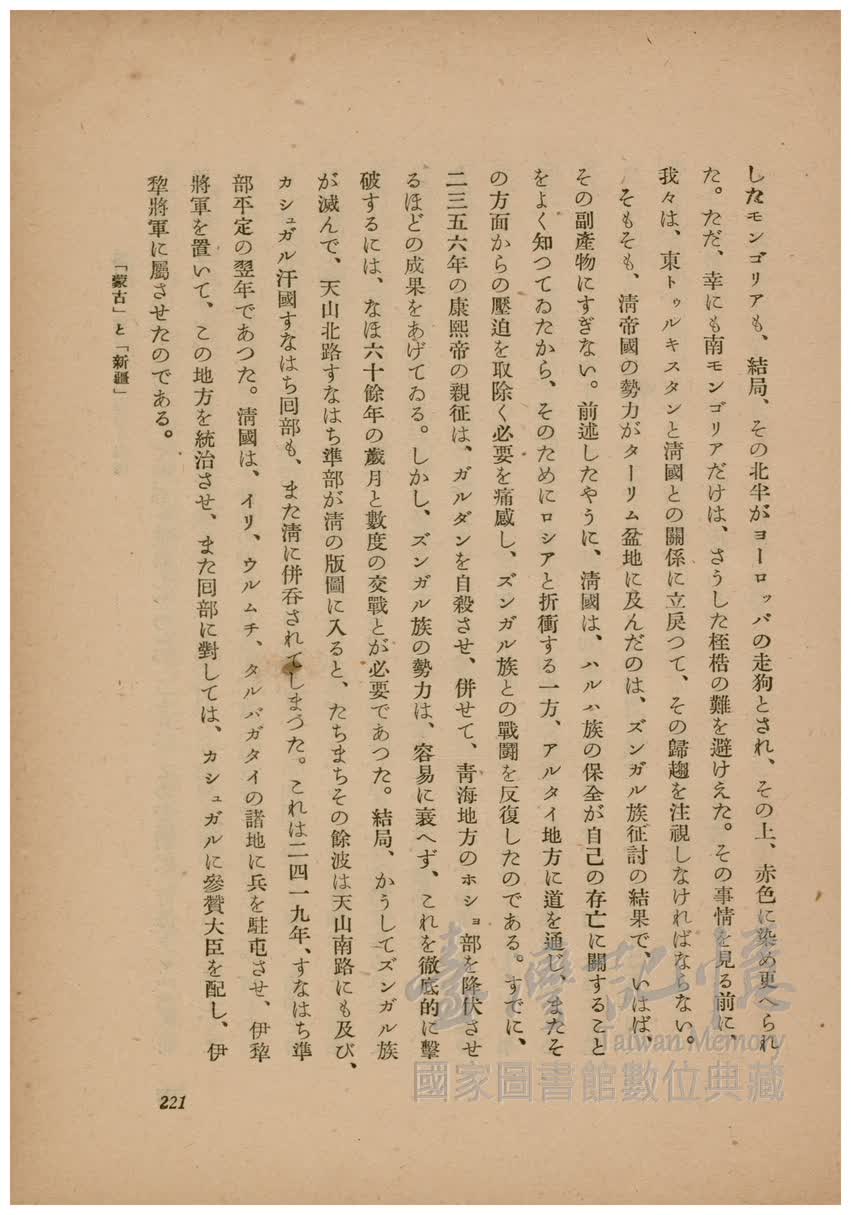 したモンゴリアも、結局、その北半がヨーロッパの走狗とされ、その上、赤色に染め更へられ
た。ただ、幸にも南モンゴリアだけは、さうした桎梏の難を避けえた。その事情を見る前に、
我々は、東トゥルキスタンと淸國との關係に立戾つて、その歸趨を注視しなければならない。
そもそも、淸帝國の勢力がターリム盆地に及んだのは、ズンガル族征討の結果で、いはば、
その副產物にすぎない。前述したやうに、淸國は、ハルハ族の保全が自己の存亡に關すること
をよく知つてゐたから、そのためにロシアと折衝する一方、アルタイ地方に道を通じ、またそ
の方面からの壓迫を取除く必要を痛感し、ズンガル族との戰鬪を反復したのである。すでに、
二三五六年の康熙帝の親征は、ガルダンを自殺させ、併せて、靑海地方のホショ部を降伏させ
るほどの成果をあげてゐる。しかし、ズンガル族の勢力は、容易に衰へず、これを徹底的に擊
破するには、なほ六十餘年の歲月と數度の交戰とが必要であつた。結局、かうしてズンガル族
が滅んで、天山北路すなはち準部が淸の版圖に入ると、たちまちその餘波は天山南路にも及び、
カシュガル汗國すなはち囘部も、また淸に併呑されてしまつた。これは二四一九年、すなはち準
部平定の翌年であつた。淸國は、イリ、ウルムチ、タルバガタイの諸地に兵を駐屯させ、伊犂
將軍を置いて、この地方を統治させ、また囘部に對しては、カシュガルに參贊大臣を配し、伊
犂將軍に屬させたのである。
「蒙古」と「新疆」
221
臺灣記憶
Taiwan Memory
國家圖書館數位典藏